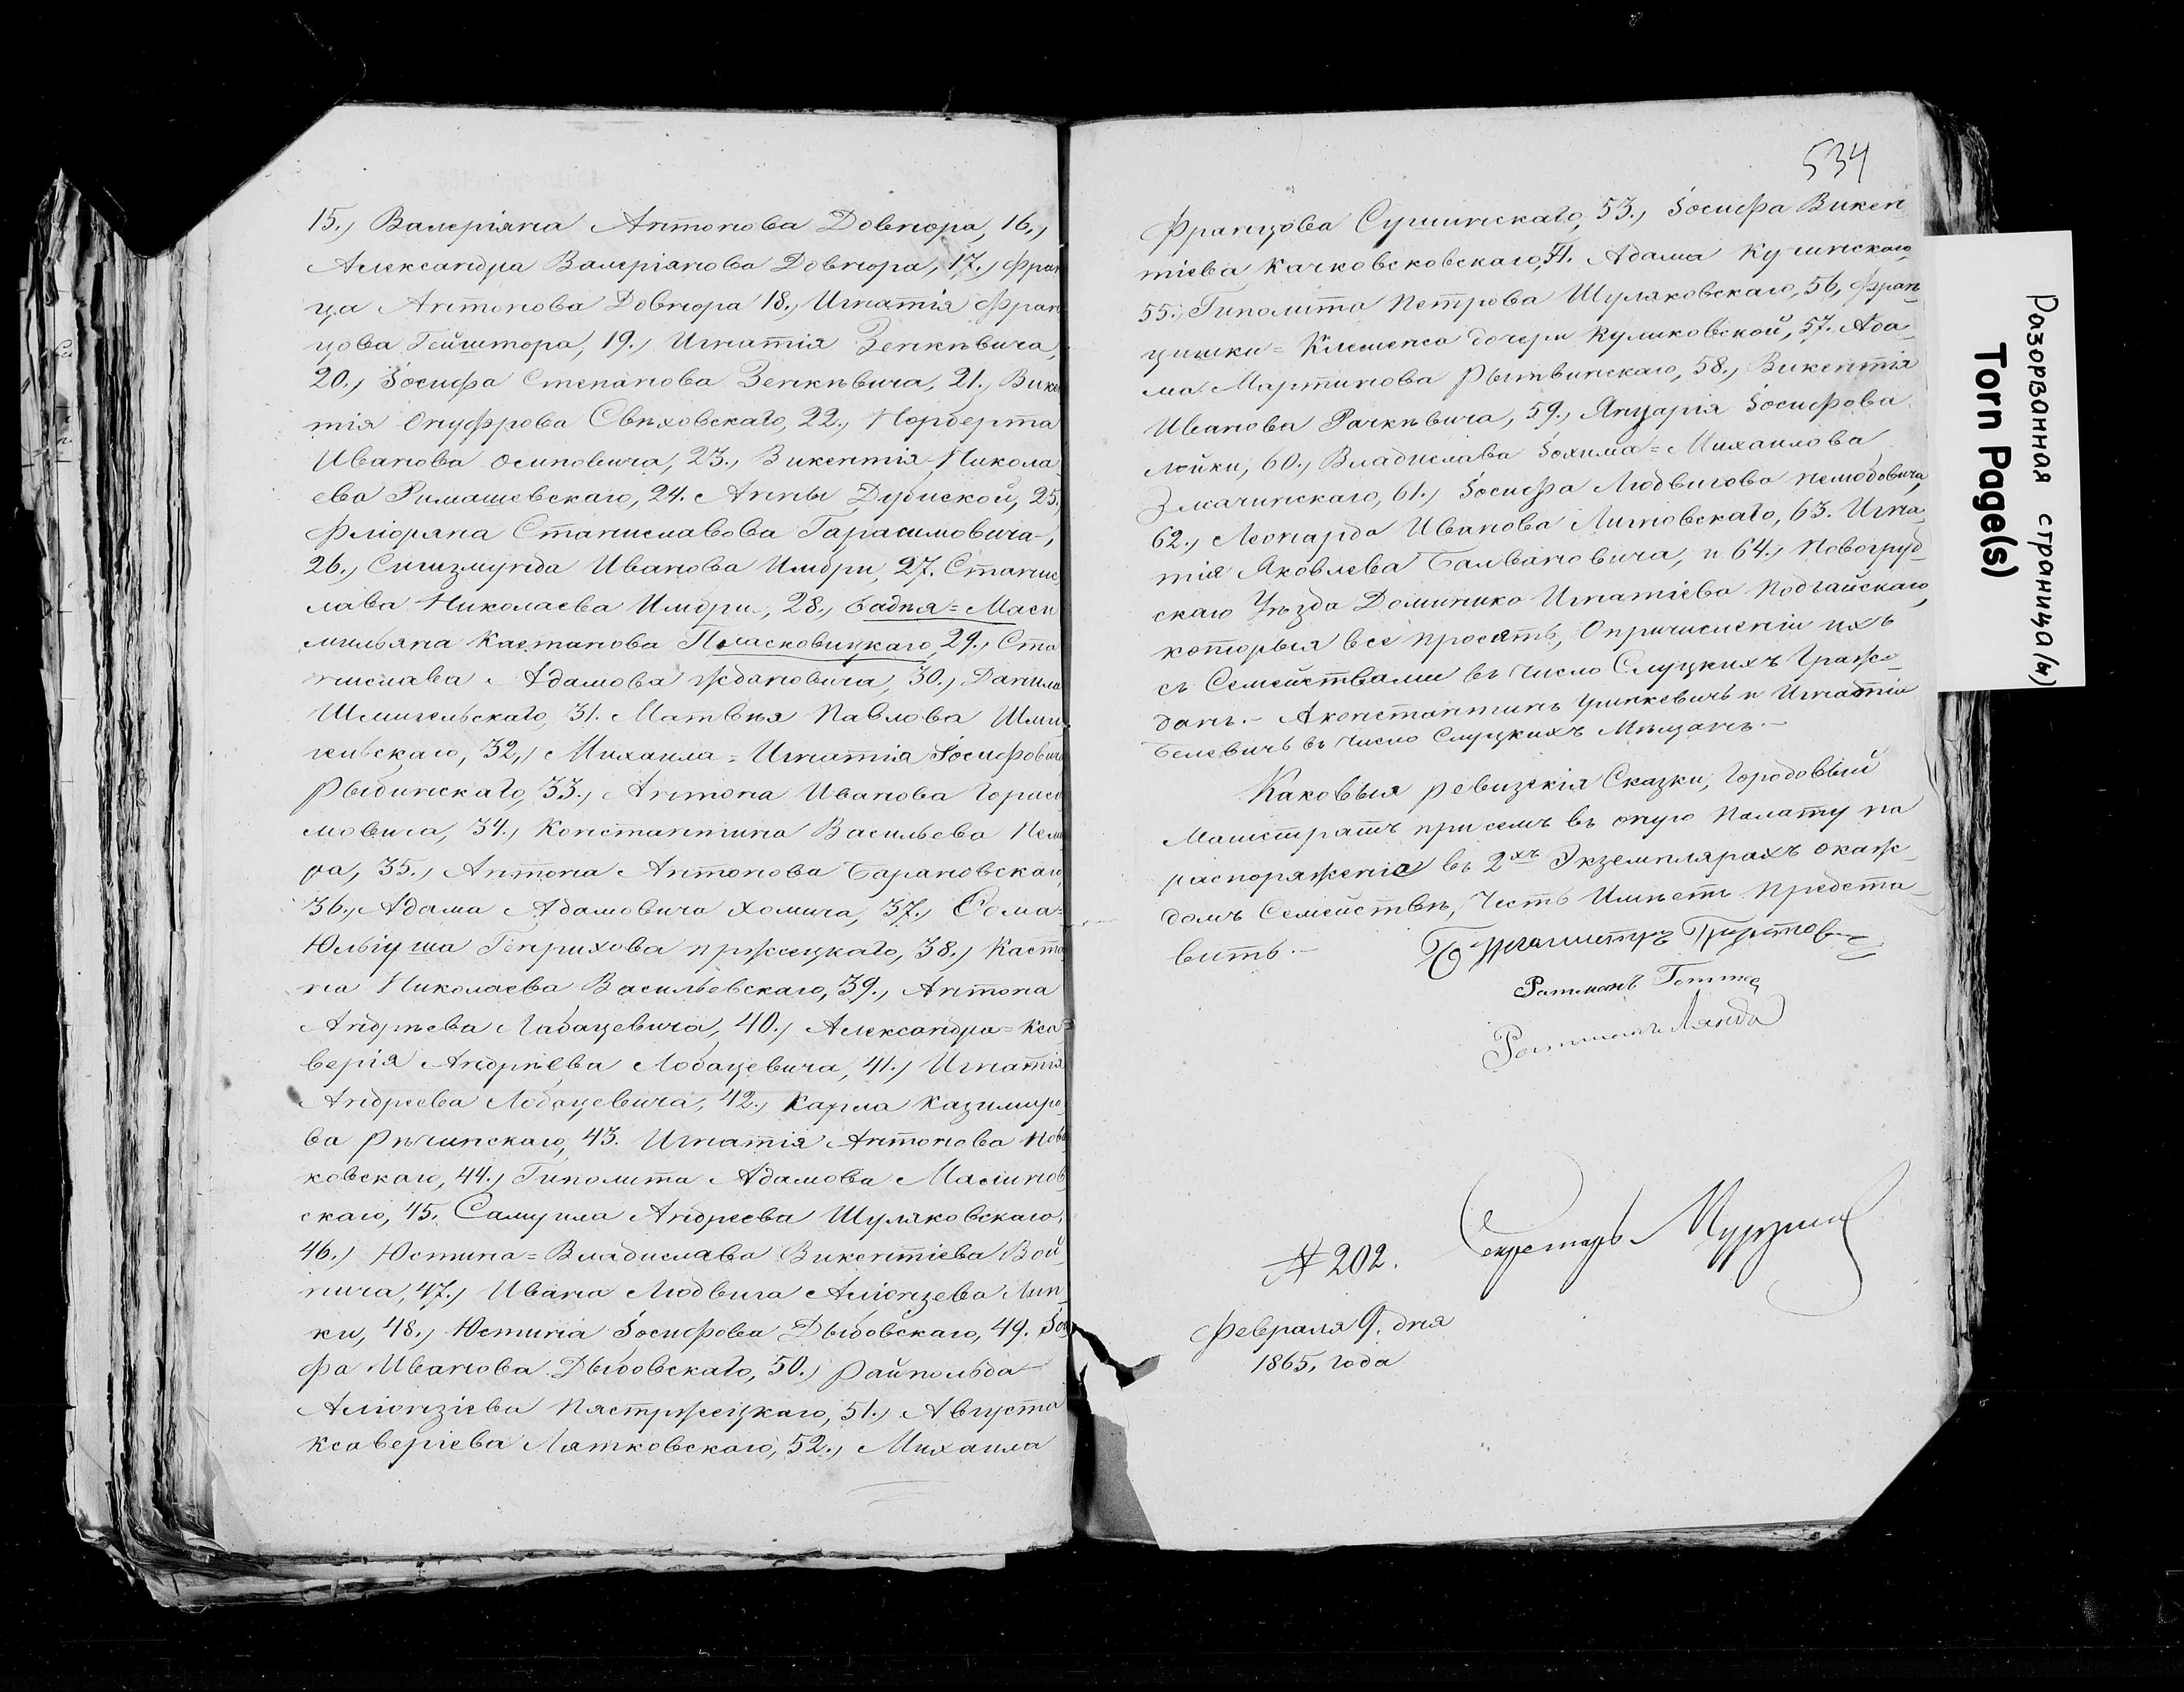 15., Валеріяна Антонова Довнора, 16.,
Александра Валеріянова Довнора, 17., Фран
ца Антонова Довнора 18., Игнатія Фран
цова Гейштора, 19., Игнатія Зенкѣвича,
20., Іосифа Степанова Зенкѣвича, 21., Викен
тія Онуфрова Свѣховскаго, 22., Норберта
Иванова Осиповича, 23., Викентія Никола
ева Римашевскаго, 24. Анны Дубиской, 25.
Флюряна Станиславова Гарасимовича,
26., Сигизмунда Иванова Имбри, 27. Станис
лава Николаева Имбри, 28., Фадѣя=Маси
мильяна Каетанова Пласковицкаго, 29., Ста
нислава Адамова Ждановича, 30., Данила
Шмигельскаго, 31. Матвѣя Павлова Шми
гельскаго, 32., Михаила=Игнатія Іосифовича
Рыбинскаго, 33., Антона Иванова Гораси
мовича, 34., Константина Васильева
ра, 35., Антона Антонова Барановскаго,
36., Адама Адамовича Хомича, 37.,
Юльіуша Генрихова Пржецкаго, 38., Каета
на Николаева Васильевскаго, 39., Антона
Андрѣева Лабацевича, 40., Александра=Кса=
верія Андрѣева Лобацевича, 41., Игнатія
Андреева Лобацевича, 42., Карла Казимиро
ва Рѣчинскаго, 43. Игнатія Антонова Нова
ковскаго, 44., Гиполита Адамова Малинов
скаго, 45. Самуила Андреева Шуляковскаго,
46., Юстина=Владислава Викентіева Вой
нича, 47., Ивана Людвига Алюизева Лип
ки, 48., Юстина Іосифова Дыбовскаго, 49. Іоси
фа Иванова Дыбовскаго, 50., Райнольда
Алюизіева Пястржецкаго, 51., Августа
Ксаверіева Лятковскаго, 52., Михаила
534
Францова Сушинскаго, 53., Іосифа Викен
тіева Качковсковскаго, 54. Адама Кушинскаго,
55., Гиполита Петрова Шуляковскаго, 56, Фран
цишки=Клеменса дочери Куликовской, 57. Ада
ма Мартинова Рытвинскаго, 58., Викентія
Иванова Рачкѣвича, 59., Януарія Іосифова
Лойки, 60., Владислава Іохима=Михаилова
Змачинскаго, 61., Іосифа Людвигова
62., Леонарда Иванова Лиговскаго, 63. Игна
тія Яковлева Балвановича, и 64., Новогруд
скаго Уѣзда Доминико Игнатіева Подгайскаго,
которыя все просятъ, О причисленіи ихъ
съ Семействами въ число Слуцкихъ Граж=
данъ.- А Константинъ и Игнатій
Белевичъ въ число Слуцкихъ Мѣщанъ.-
Каковыя ревизскія Сказки, Городовый
Магистратъ при семъ въ оную Палату на
распоряженіе въ 2хъ Экземплярахъ о каж
домъ Семействѣ, Честь Имѣетъ предста
вить.-
Бургмистръ
Ратманъ
Ратманъ Лянда
№ 202.
Секретарь
Февраля 9. дня
1865, года
Разорванная страница(ы)
Torn Page(s)